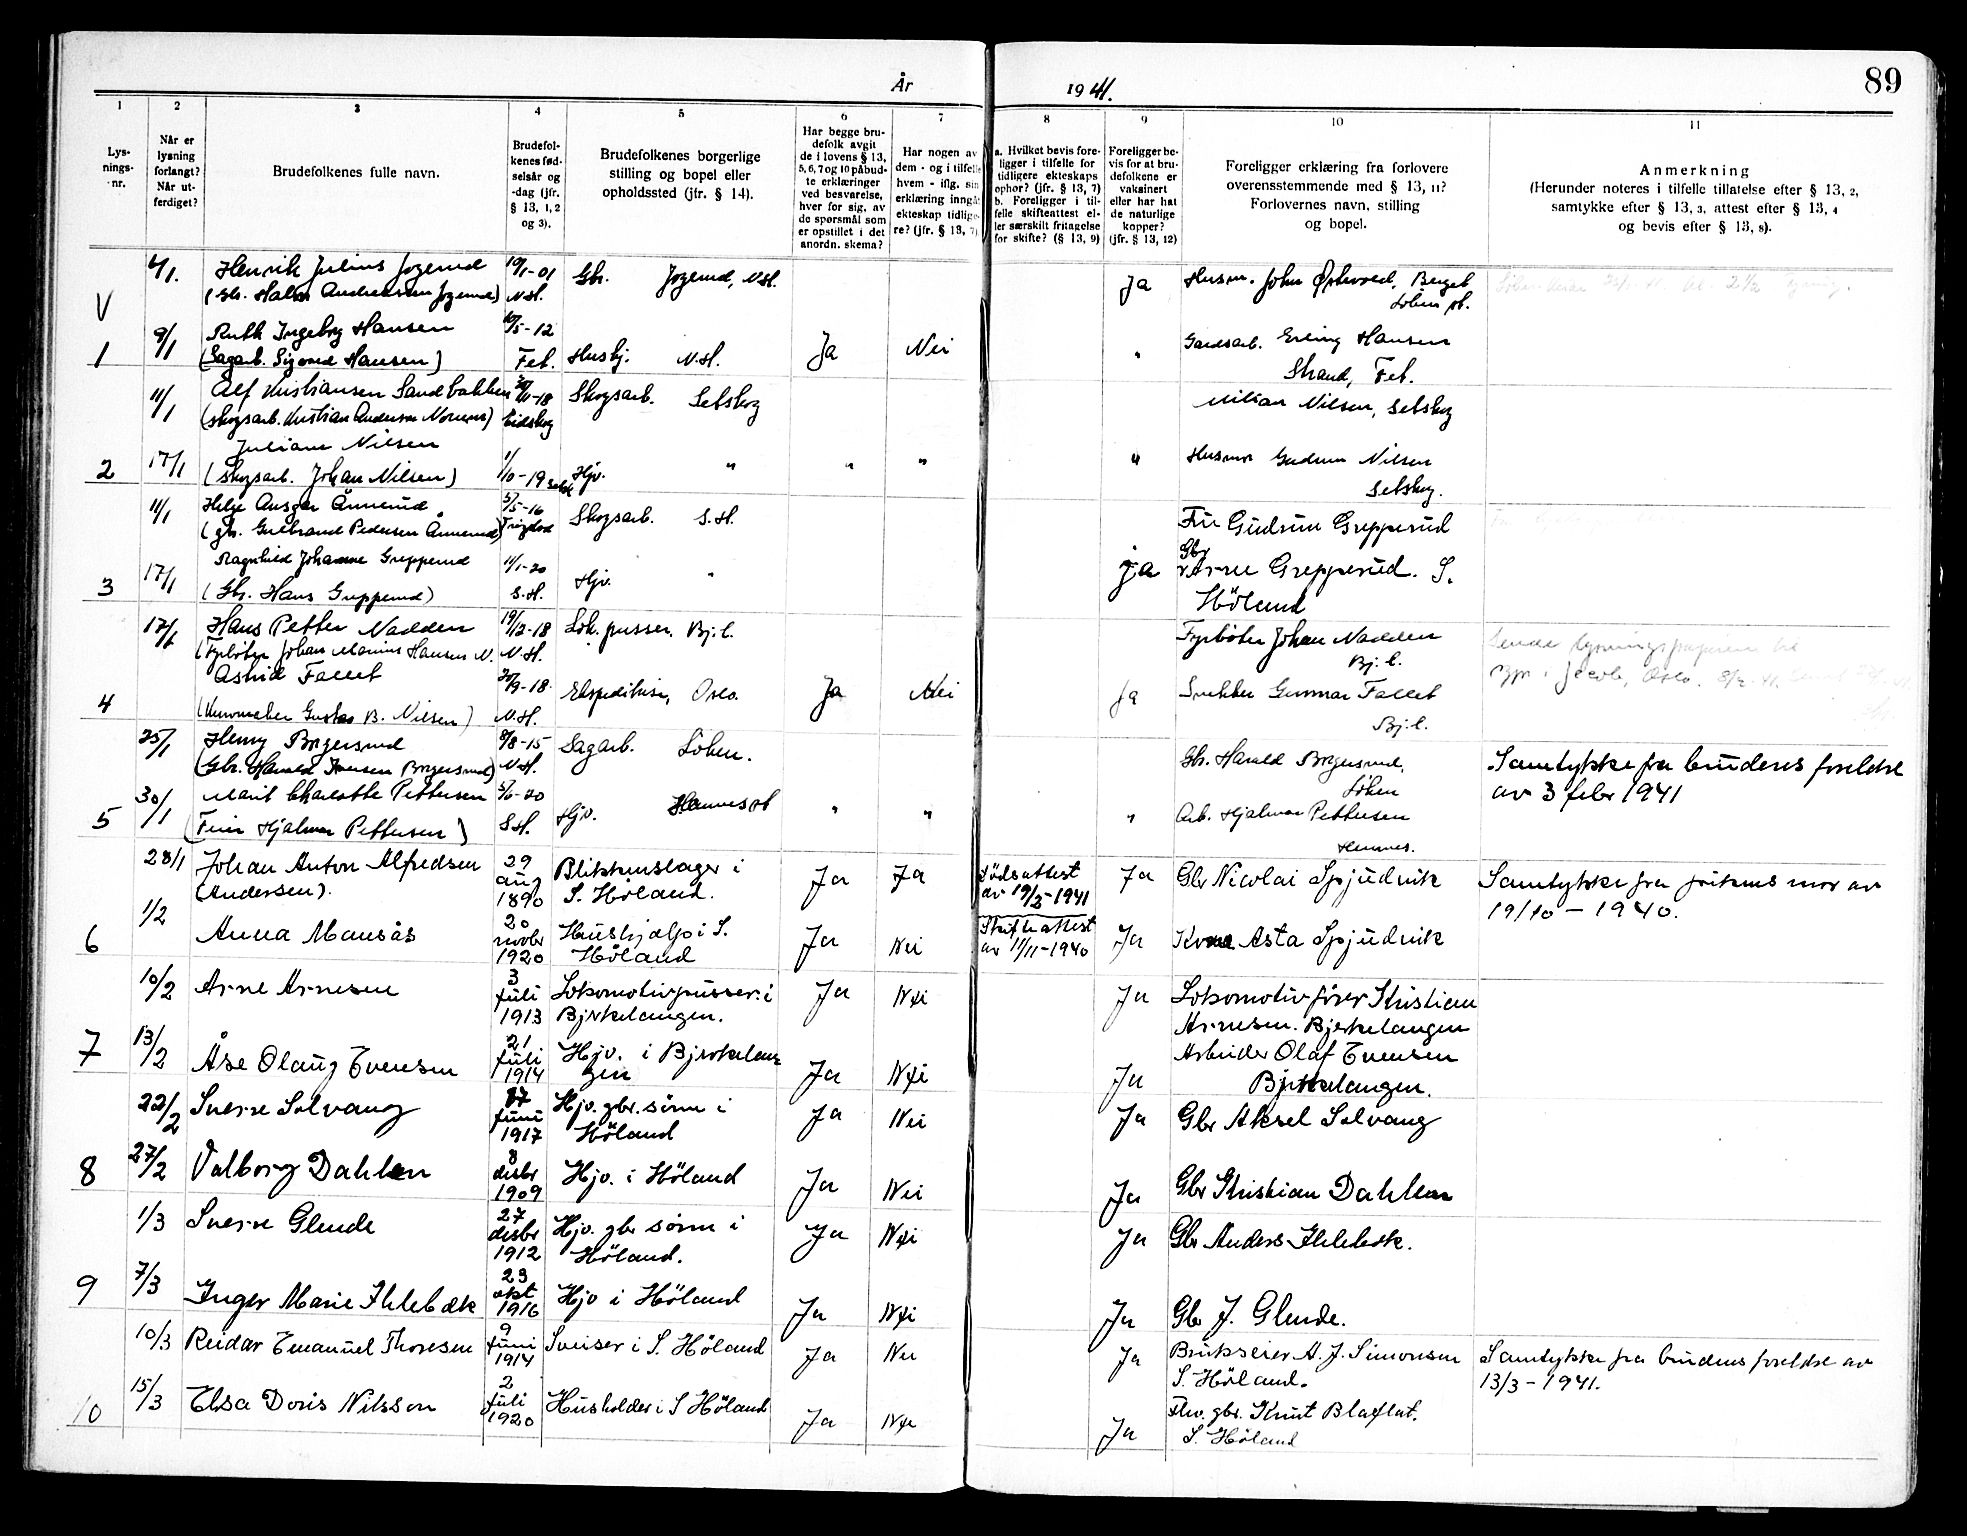 År 1941.
89
1 2 3 4 5 6 7 8 9 10 11
Lys-
nings-
nr.
Når er
lysning
forlangt?
Når ut-
ferdiget?
Brudefolkenes fulle navn.
Brudefol-
kenes fød-
selsår og
-dag (jfr.
§ 13, 1, 2
og 3).
Brudefolkenes borgerlige
stilling og bopel eller
opholdssted (jfr. § 14).
Har begge bru-
defolk avgit
de i lovens § 13,
5, 6, 7 og 10 påbud-
te erklæringer
ved besvarelse,
hver for sig, av
de spørsmål som
er opstillet i det
anordn. skema?
Har nogen av
dem - og i tilfelle
hvem - iflg. sin
erklæring inngått
ekteskap tidlige-
re? (jfr. § 13, 7)
a. Hvilket bevis fore-
ligger i tilfelle for
tidligere ekteskaps
ophør? (jfr. § 13, 7)
b. Foreligger i til-
felle skifteattest el-
ler særskilt fritagelse
for skifte? (§ 13, 9)
Foreligger be-
vis for at bru-
defolkene er
vaksinert
eller har hat
de naturlige
kopper?
(jfr. § 13, 12)
Foreligger erklæring fra forlovere
overensstemmende med § 13, 11?
Forlovernes navn, stilling
og bopel.
Anmerkning
(Herunder noteres i tilfelle tillatelse efter § 13, 2,
samtykke efter § 13, 3, attest efter § 13, 4
og bevis efter § 13, 8).
V 4/1. Henrik Julius Jogerud 19/1-01 Gbr. Jogerud, N.H. Ja Husm. John Østvold, Berget
(Gbr. Halvor Andreassen Jogerud) N.H. Løken st.
1 9/1 Ruth Ingeborg Hansen 10/5-12
(Sagarb. Sigvard Hansen) Fet. Hushj. N.H. Ja Nei " Gardsarb. Erling Hansen
Strand, Fet.
11/1 Alf Kristiansen Sandbakken /11-18 Skogsarb. Setskog Nilsen, Setskog
(skogsarb. Kristian Andersen) Eidskog
Juliane Nilsen
2 17/1 (skogsarb. Johan Nilsen) 1/10-19 Setsk Hjv. " " " " Husmor Gudrun Nilsen
Setskog.
11/1 Helge Ansgar Ånnerud 5/5-16 Skogsarb. S.H. Fru Gudrun Grepperud
(gbr. Gulbrand Pedersen Ånnerud) Trøgstad
Ragnhild Johanne Grepperud 11/1-20
3 17/1 (Gbr. Hans Grepperud) S.H. Hjv. " Ja Gbr Arne Grepperud. S.
Höland
17/1 Hans Petter Nadden 19/12-18 Lok. pusser. Bj.l. Fyrbøter Johan Nadden
(Fyrbøter Johan Marius Hansen N. N.H. Bj.l.
Astrid Fallet /9-18. Ekspeditrise, Oslo. Ja Nei Ja Snekker Gunnar Fallet
4 (Urmaker Gustav B. Nilsen) N.H. Bj.l.
25/1 Henry Borgersrud 8/8-15 Sagarb. Löken. Gbr. Harald Borgersrud, Samtykke fra brudens foreldre
(Gbr. Harald Borgersrud) N.H. Löken av 3 febr 1941
5 30/1 Marit Charlotte Pettersen 5/6-20 Hjv. Hemnes st " " " Arb. Hjalmar Pettersen
(Hjalmar Pettersen) S.H. Hemnes.
28/1 Johan Anton Alfredsen 29 Blikkenslager i Ja Ja Dødsattest Ja Gbr Nicolai Spjudvik Samtykke fra mor av
(Andersen). aug 1890 S. Höland. av 19/2-1941 19/10-1940.
6 1/2 Anna Mansås 20 Hushjelp i S. Ja Nei Skifteattest Ja Kone Asta Spjudvik
novbr 1920 Höland av 11/11-1940
10/2 Arne Arnesen 3 Lokomotivpusser i Ja Nei Ja Lokomotivfører Kristian
juli 1913 Bjørkelangen. Arnesen. Bjerkelangen
7 13/2 Åse Olaug Evensen 21 Hjv. i Bjørkelan Ja Nei Ja Arbeider Olaf Evensen
juli 1914 gen Bjerkelangen.
22/2 Sverre Solvang 17 Hjv. gbr. sønn i Ja Nei Ja Gbr Aksel Solvang
juni 1917 Höland
8 27/2 Valborg Dahlen 8 Hjv. i Höland Ja Nei Ja Gbr Kristian Dahlen
desbr 1909
1/3 Sverre Glende 27 Hjv. gbr sønn i Ja Nei Ja Gbr Anders Ihlebæk.
desbr 1912 Höland.
9 7/3 Inger Marie Ihlebæk 23 Hjv i Höland Ja Nei Ja Gbr J. Glende.
okt 1916
10/3 Reidar Emanuel Thoresen 9 Sveiser i S. Höland Ja Nei Ja Brukseier A. J. Simonsen Samtykke fra brudens foreldre av
juni 1914 S. Höland. 13/3-1941.
10 15/3 Elsa Doris Nilsson 2 Husholder i S Höland Ja Nei Ja Fhv. gbr. Knut Blaflat.
juli 1920 S. Höland